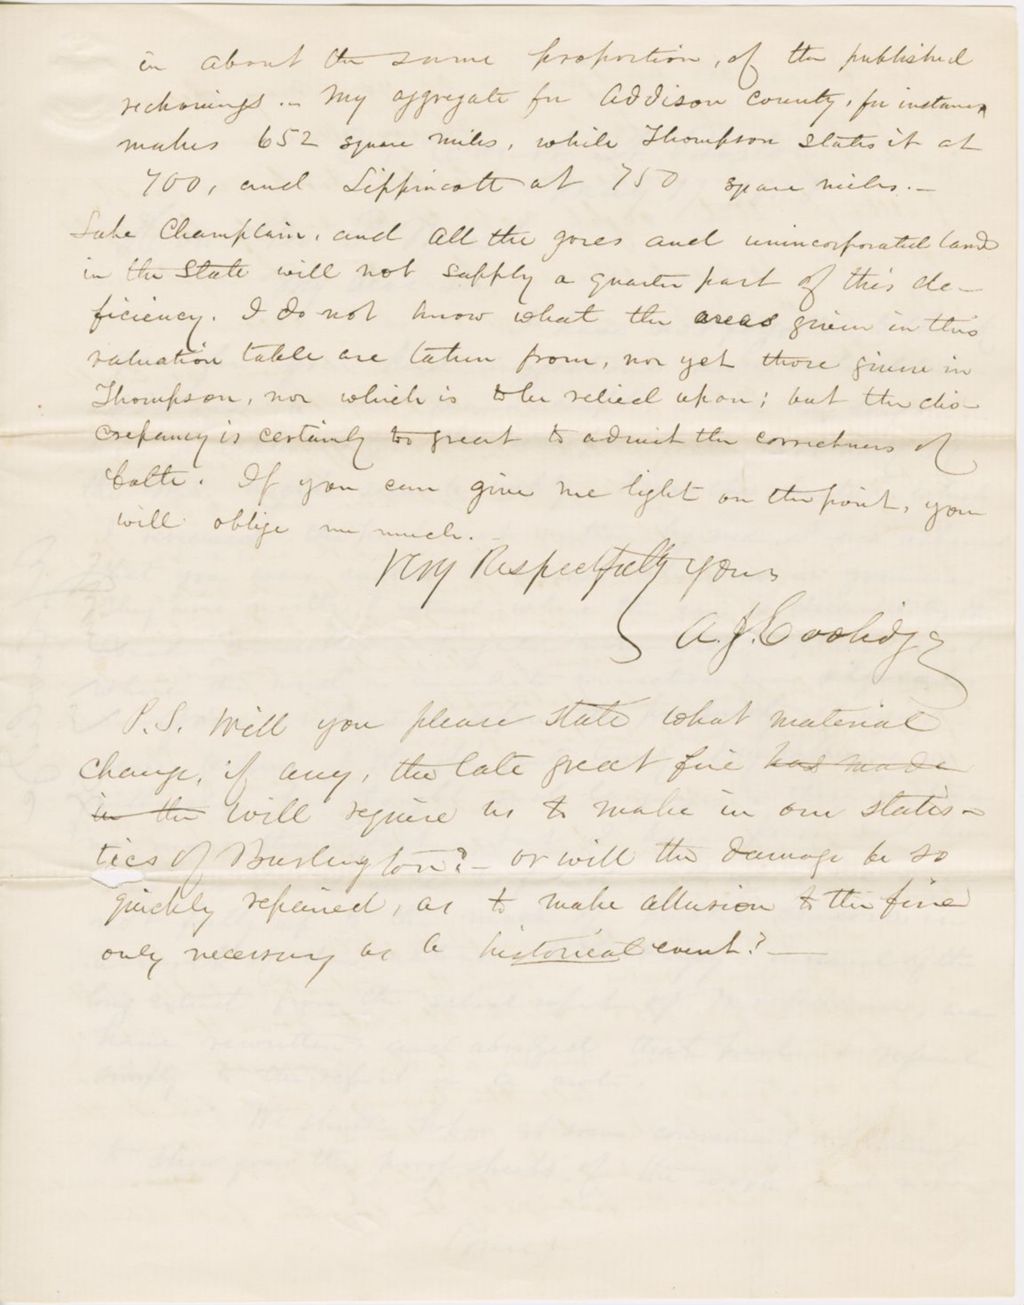 in about the same proportion, of the published
reckonings. – My aggregate for Addison county, for instance,
makes 652 square miles, while Thompson states it at
700, and Lippincott at 750 square miles. –
Lake Champlain, and all the gores and unincorporated land
in the State will not supply a quarter part of this de-
ficiency. I do not know what the areas given in this
valuation table are taken from, nor yet those given in
Thompson, nor which is to be relied upon; but the dis-
crepancy is certainly too great to admit the correctness of
both. If you can give me light on the point, you
will oblige me much. –
Very Respectfully Yours
A. J. Coolidge
P.S. Will you please state what material
change, if any, the late great fire has made
in the will require us to make in our statis-
tics of Burlington? – or will the damage be so
quickly repaired, as to make allusion to the fire
only necessary as a historical event? –